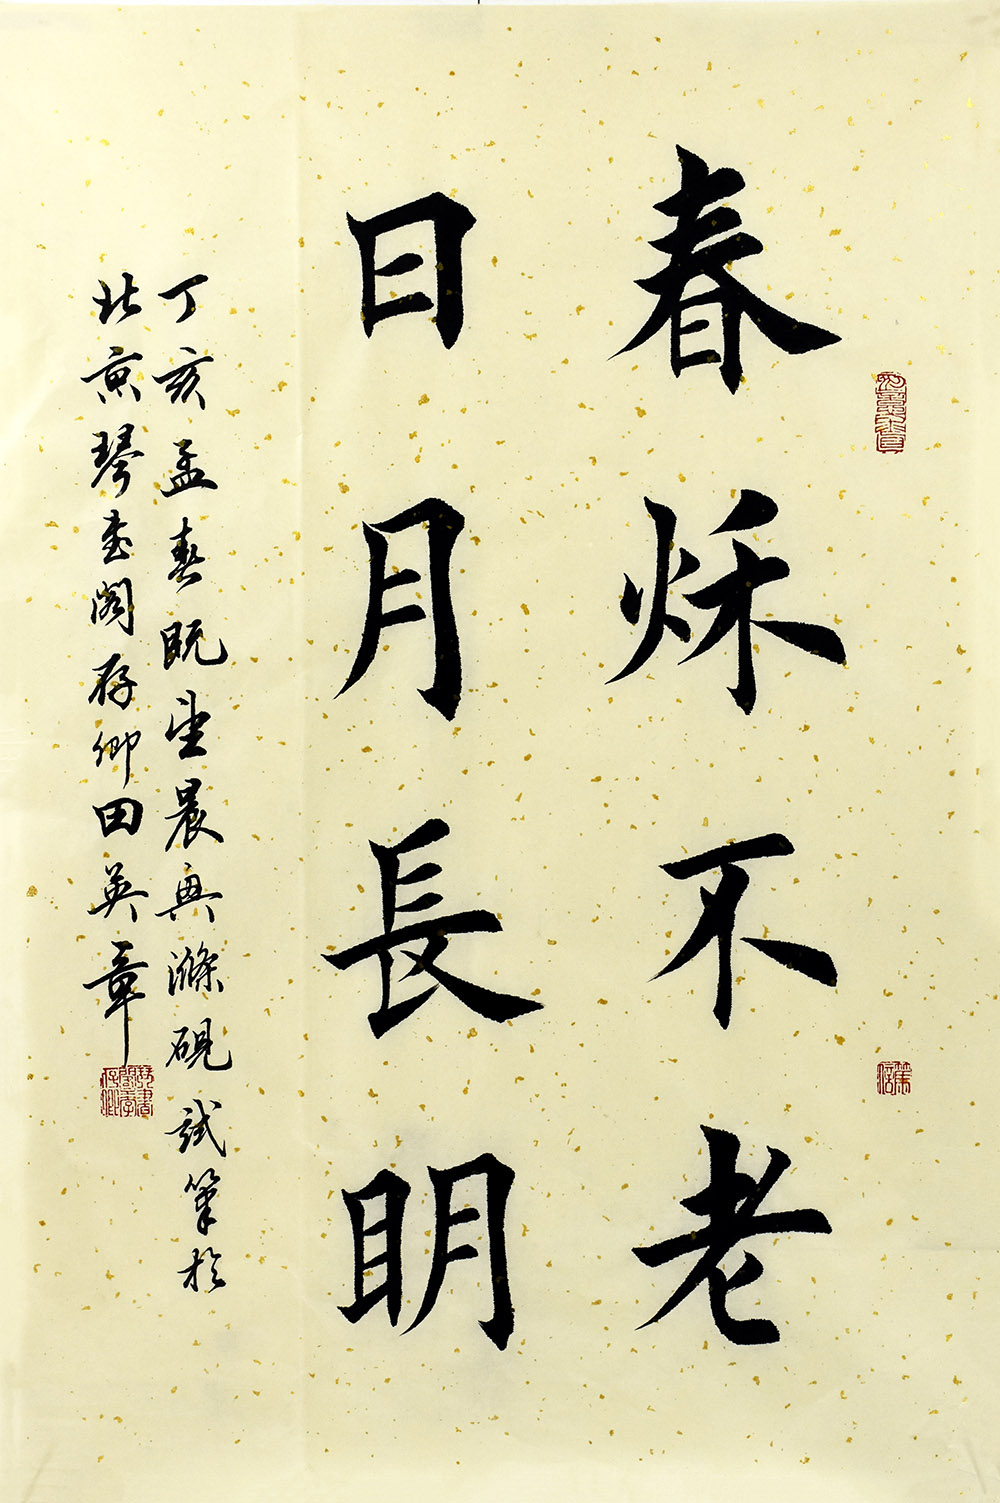 春秌不老
日月長眀
丁亥孟春既望晨興滌硯試筆於
北京琴書閣存卿田英章